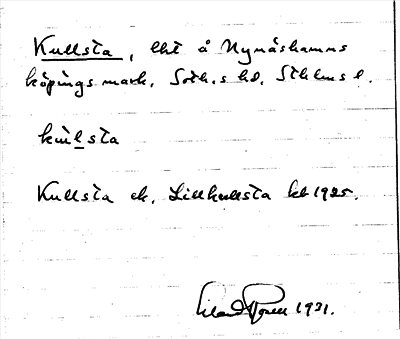 Kullsta, lht å Nynäshamns
köpings mark, Soth.s hd, Sthlms l.
kul̲sta
Kullsta ek. Lillkullsta kb 1925.
Erland Rosell 1931.